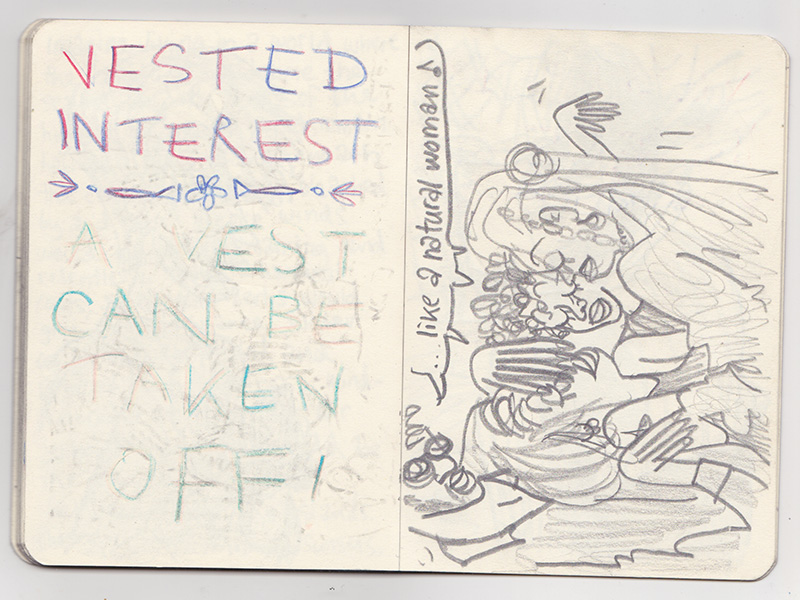 VESTED
INTEREST
A VEST
CAN BE
TAKEN
OFF
...like a natural woman ♪